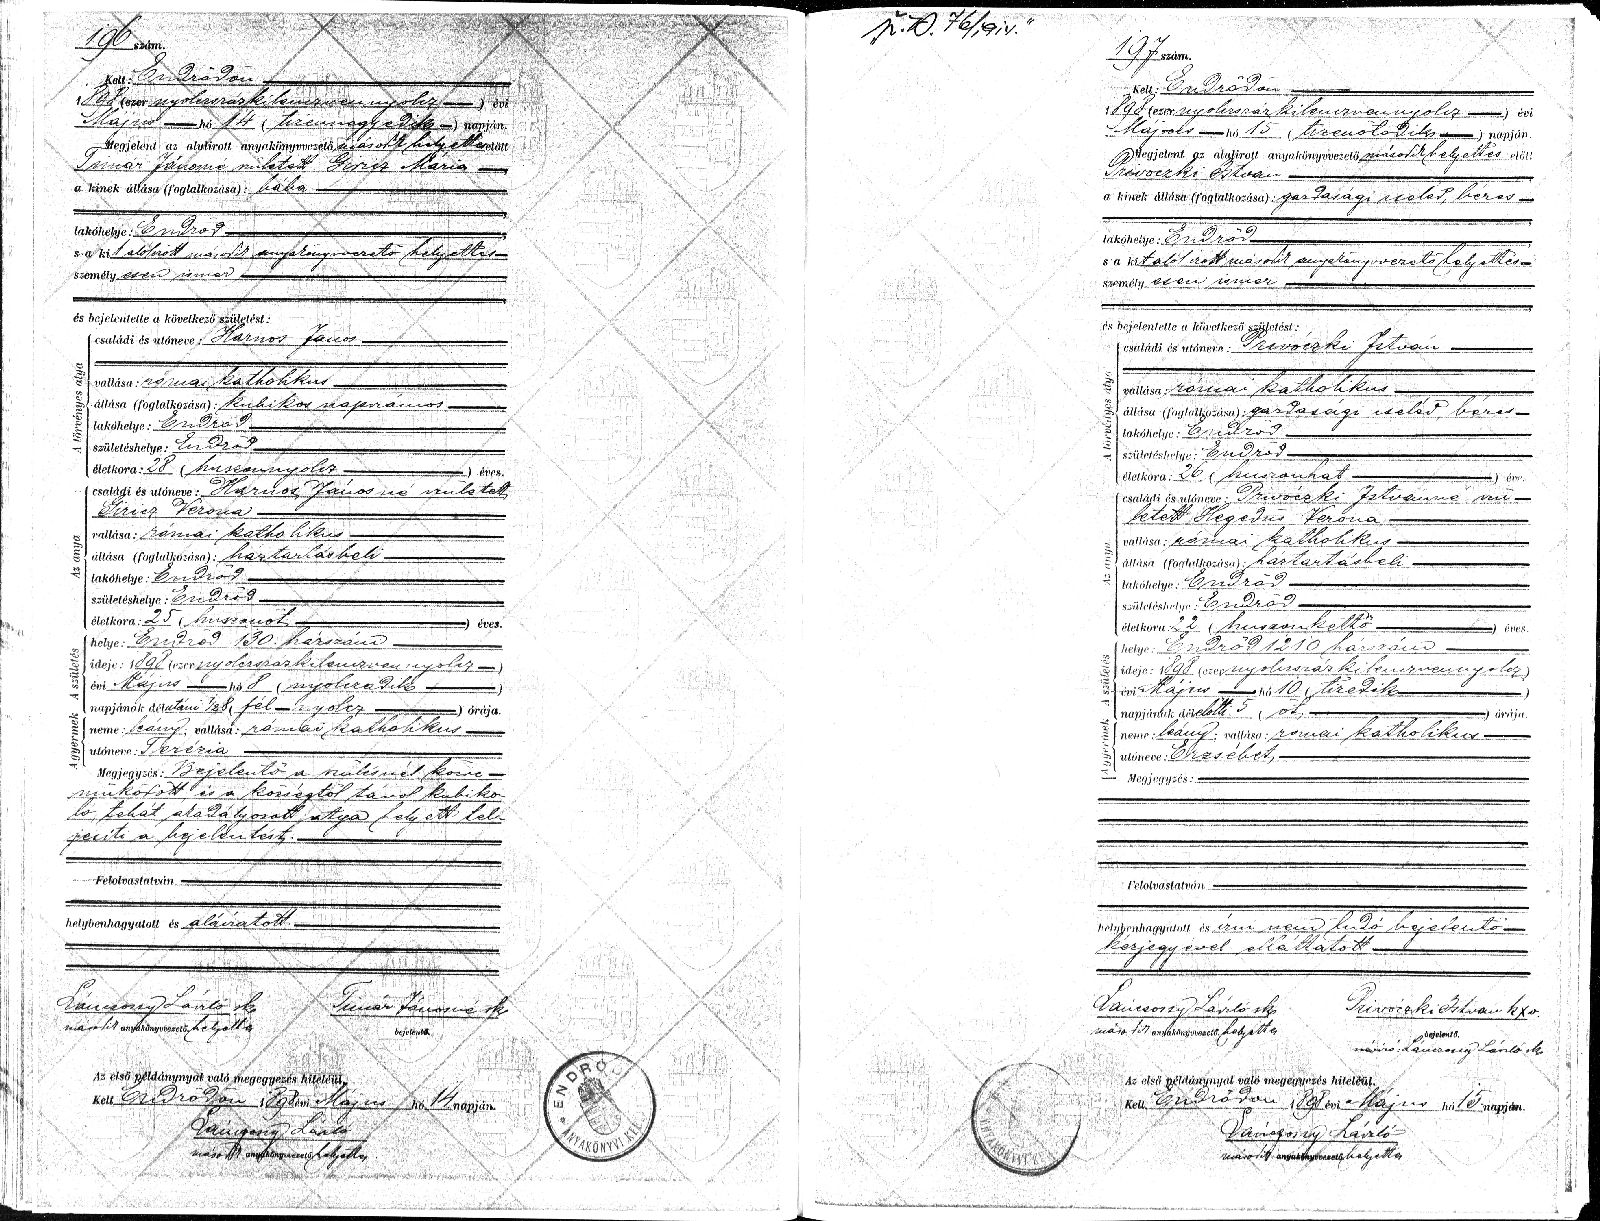 196 szám.
Kelt: Endrődön
1898 (ezer nyolcszázkilenczvennyolcz) évi
Május hó 14 (tizennegyedik) napján.
Megjelent az alulirott anyakönyvvezető másodit helyettes előtt
Timár Jánosné született Giricz Mária
a kinek állása (foglalkozása): bába
lakóhelye: Endrőd
s a kit alólirott másodit anyakönyvvezető helyettes
személyesen ismer
és bejelentette a következő születést:
A törvényes atya
családi és utóneve: Harnos János
vallása: római katholikus
állása (foglalkozása): kubikos napszámos
lakóhelye: Endrőd
születéshelye: Endrőd
életkora: 28 (huszonnyolcz) éves.
Az anya
családi és utóneve: Harnos Jánosné született
Giricz Verona
vallása: római katholikus
állása (foglalkozása): háztartásbeli
lakóhelye: Endrőd
születéshelye: Endrőd
életkora: 25 (huszonöt) éves.
A születés
helye: Endrőd 130. házszám
ideje: 1898 (ezer nyolcszázkilenczvennyolcz)
évi Május hó 8 (nyolczadik)
napjának délutáni 1/2 8 (fél nyolcz) órája.
A gyermek
neme: leány; vallása: római katholikus
utóneve: Terézia
Megjegyzés: Bejelentő a szülésnél közre
működött és a községtől távol kubiko-
ló, tehát akadályozott atya helyett tel-
jesíti a bejelentést.
Felolvastatván
helybenhagyatott és aláíratott.
Vánesony László sk Timár Jánosné sk
másodit anyakönyvvezető helyettes bejelentő.
Az első példánynyal való megegyezés hiteléül.
Kelt Endrődön 1898 évi Május hó 14 napján.
László
másodit anyakönyvvezető helyettes
ENDRŐD
ANYAKÖNYVI KER
76/914.
197 szám.
Kelt: Endrődön
1898 (ezer nyolcszázkilenczvennyolcz) évi
Május hó 15 (tizenötödik) napján.
Megjelent az alulirott anyakönyvvezető másodit helyettes előtt
Privóczki István
a kinek állása (foglalkozása): gazdasági cseléd, béres
lakóhelye: Endrőd
s a kit alólirott másodit anyakönyvvezető helyettes
személyesen ismer
és bejelentette a következő születést:
A törvényes atya
családi és utóneve: Privóczki István
vallása: római katholikus
állása (foglalkozása): gazdasági cseléd, béres
lakóhelye: Endrőd
születéshelye: Endrőd
életkora: 26 (huszonhat) éves
Az anya
családi és utóneve: Privóczki Istvánné szü-
letett Hegedűs Verona
vallása: római katholikus
állása (foglalkozása): háztartásbeli
lakóhelye: Endrőd
születéshelye: Endrőd
életkora: 22 (huszonkettő) éves.
A születés
helye: Endrőd 1210 házszám
ideje: 1898 (ezer nyolcszázkilenczvennyolcz)
évi Május hó 10 (tizedik)
napjának délelőtti 5 (öt) órája.
A gyermek
neme: leány; vallása: római katholikus
utóneve: Erzsébet,
Megjegyzés:
Felolvastatván
helybenhagyatott és írni nem tudó bejelentő
kézjegyével elláttatott
László sk Privóczki István kxv
másodit anyakönyvvezető helyettes bejelentő.
László sk
Az első példánynyal való megegyezés hiteléül.
Kelt Endrődön 1898 évi Május hó 15 napján.
László
másodit anyakönyvvezető helyettes